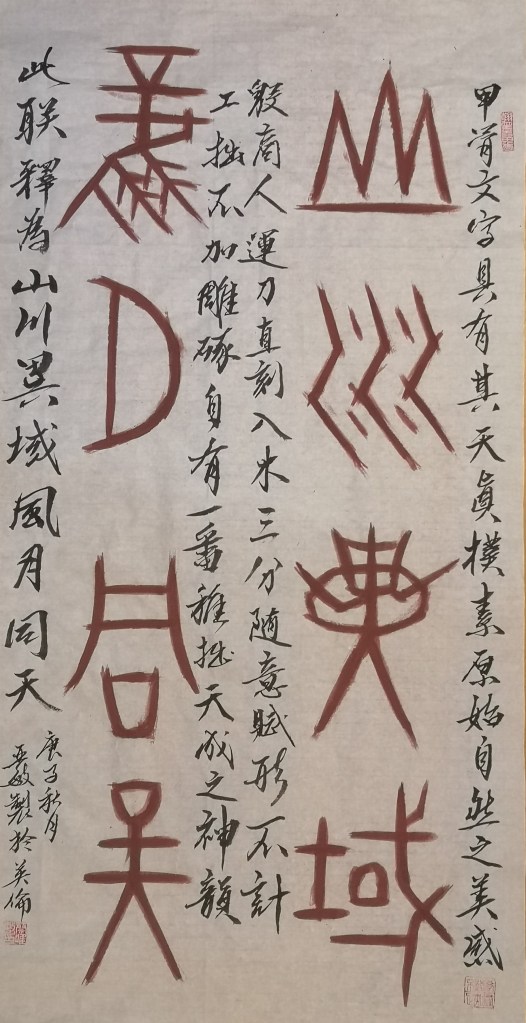 甲骨文字具有其天真朴素原始自然之美感
山川異域
殷商人運刀直刻入木三分随意賦形不計
工拙不加雕琢自有一番稚拙天成之神韻
風月同天
此联釋為山川異域風月同天
庚子秋月
亚敏製於英倫